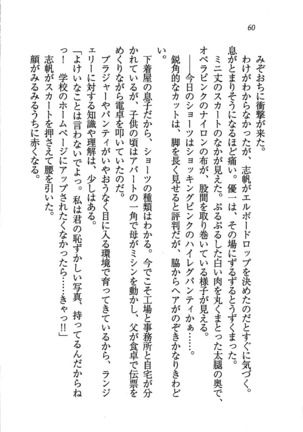 60
みぞおちに衝撃が来た。
わけがわからなかったが、志帆がエルボードロップを決めたのだとすぐに気づく。
息がとまりそうになるほど痛い。優一は、その場にずるずるとうずくまった。
ミニ丈のスカートのなかが見えた。ぷるぷるした白い肉を丸くまとった太腿の奥で、
オペラピンクのナイロンの布が、股間を取り巻いている様子が見えた。
――今日のショーツはショッキングピンクのハイレグパンティかぁ……。
鋭角的なカットは、脚を長く見せると評判だが、脇からヘアがのぞきかなりきわど
い。
下着屋の息子だから、ショーツの種類はわかる。今でこそ工場と事務所と自宅が分
かれているが、子供の頃はアパートの一角で母がミシンを動かし、父が食卓で伝票を
めくりながら電卓を叩いていたのだ。
ブラジャーやパンティがいやおうなく目に入る環境で育ってきているから、ランジ
ェリーに対する知識や理解は、少しはある。
「よけいなことは言わないでよっ。私は君の恥ずかしい写真、持ってるんだからね
っ！　学校のホームページにアップされたくなかったら……きゃっ!!」
志帆がスカートを押さえて腰を引いた。
顔がみるみるうちに赤くなる。